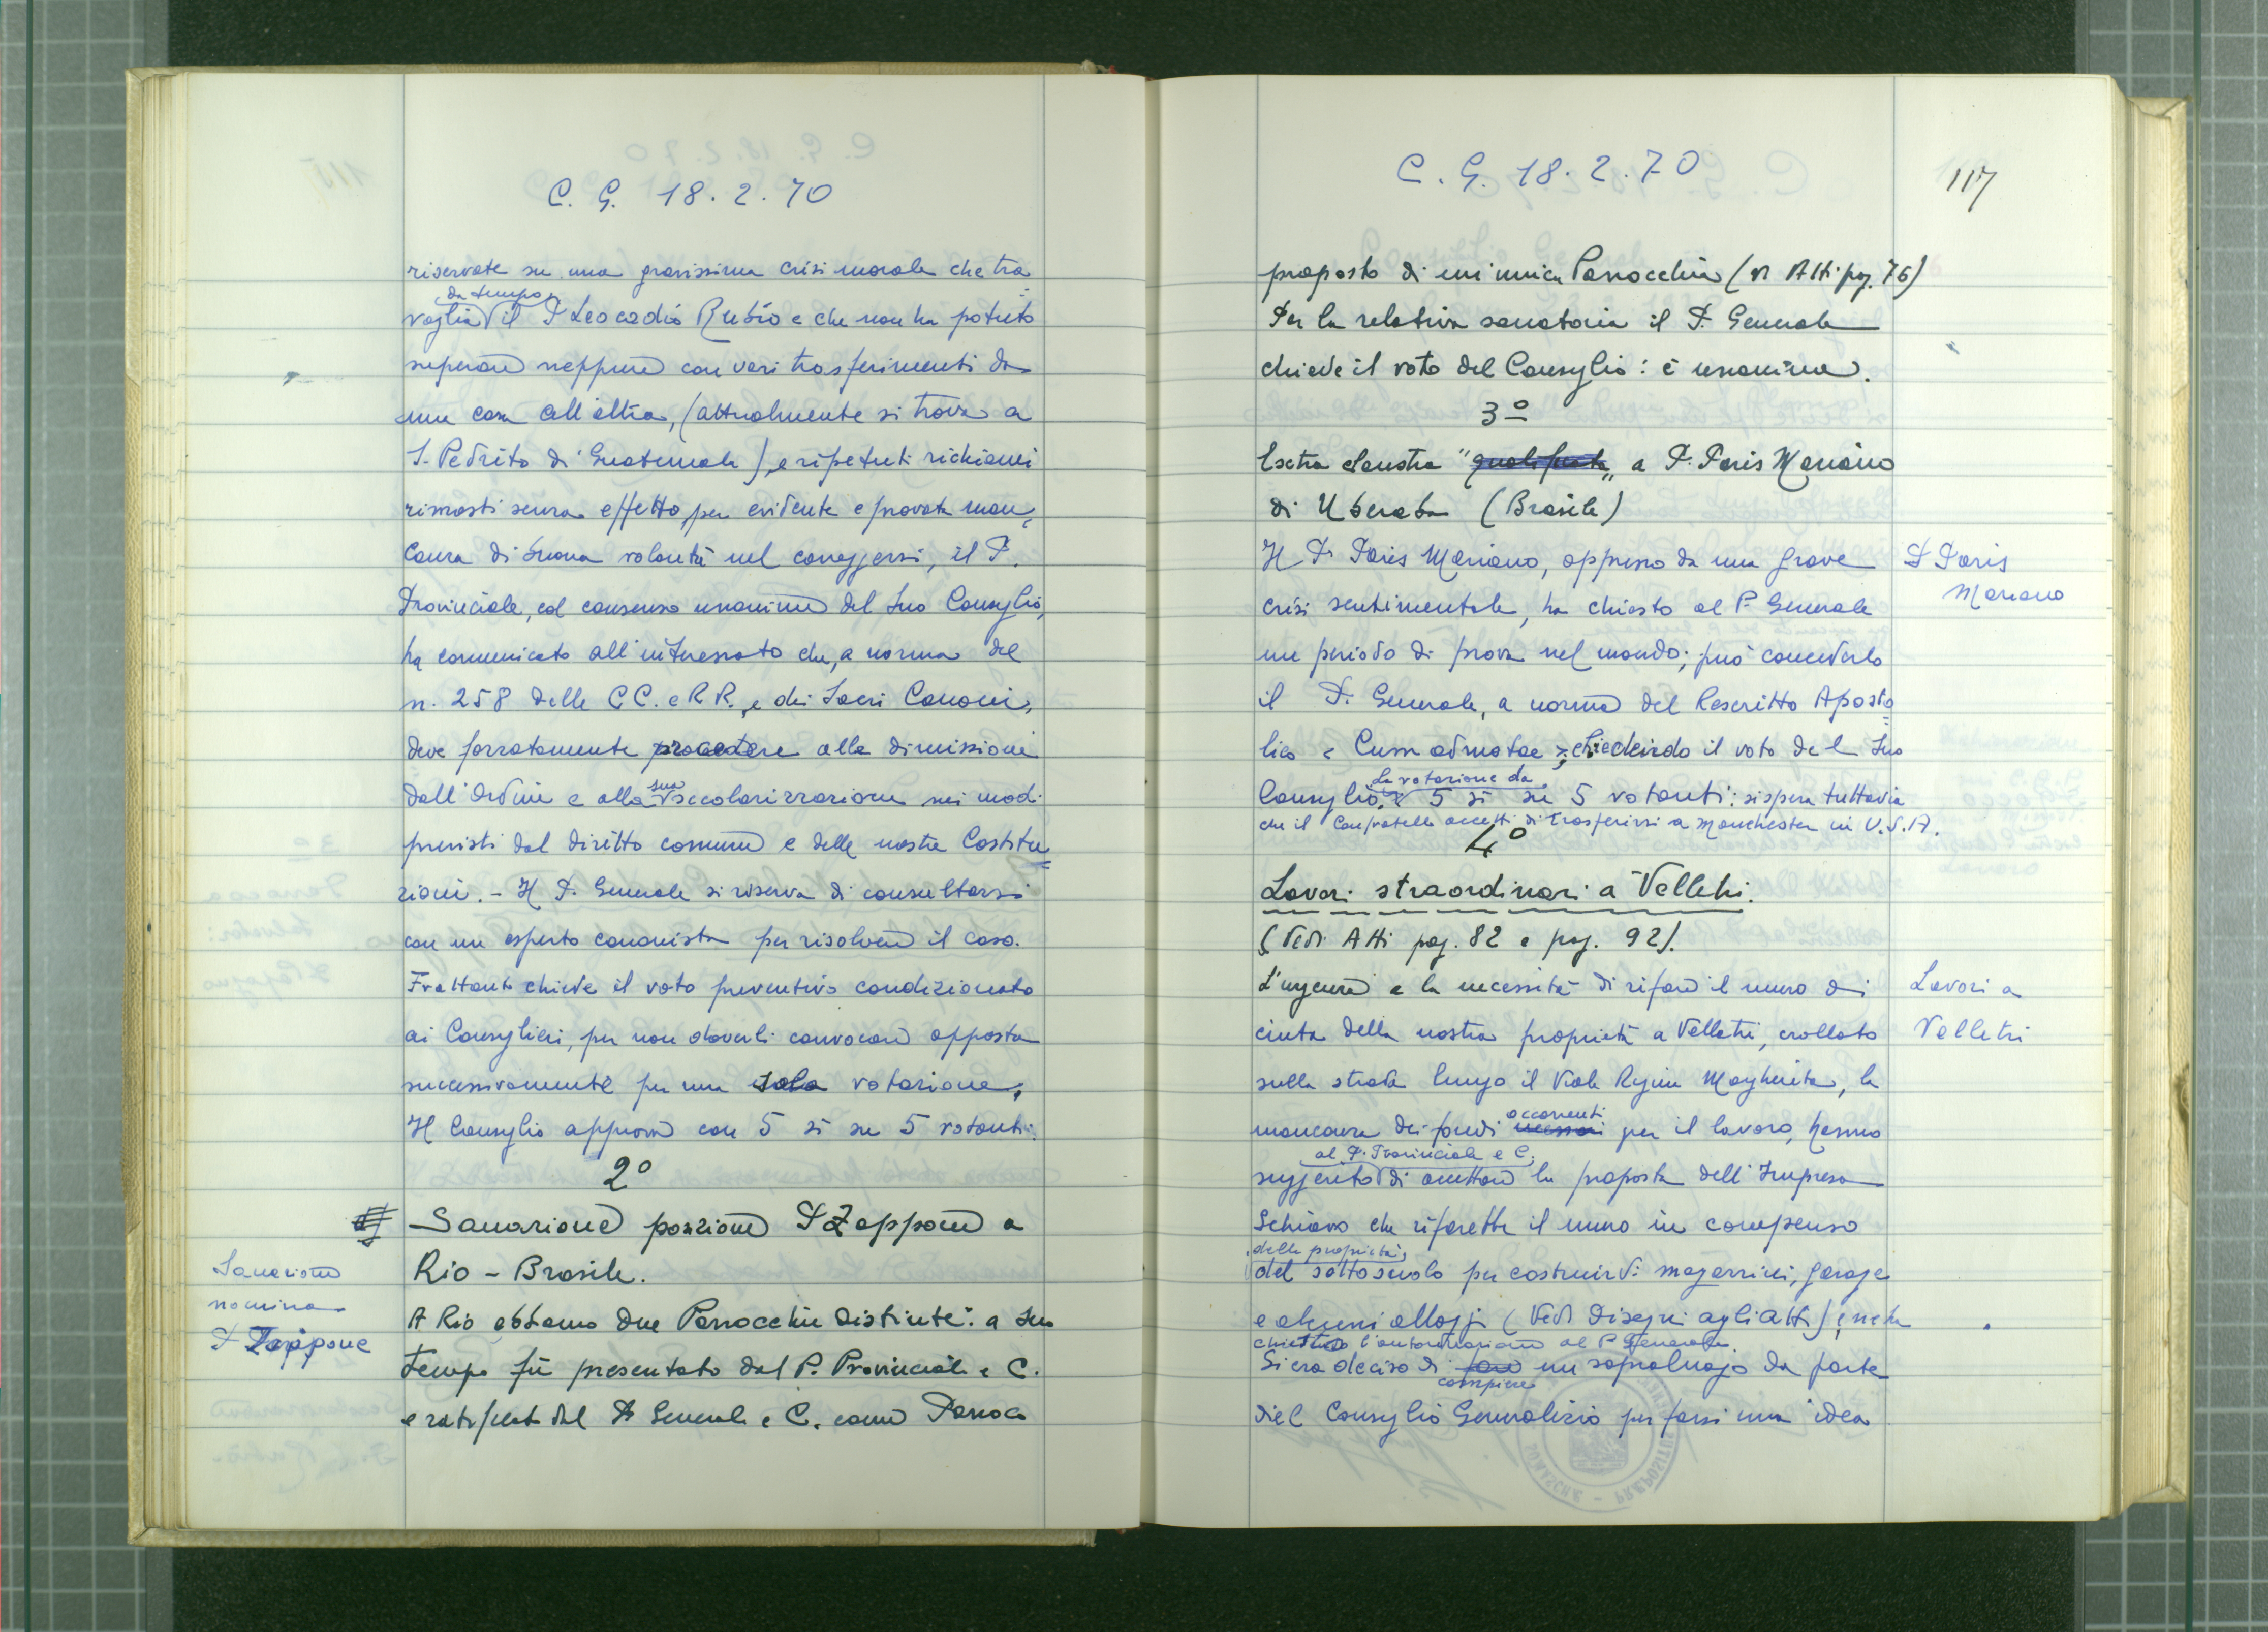 C. G. 18. 2. 70
riservate su una gravissima crisi morale che tra=
da tempo
voglia il P. Leocadio Rubio e che non ha potuto
superare neppure con vari trasferimenti da
una casa all'altra, (attualmente si trova a
S. Pedrito di Guatemala), e ripetuti richiami
rimasti senza effetto, per evidente e provata man=
canza di buona volontà nel correggersi, il P.
Provinciale, col consenso unanime del suo Consiglio,
ha comunicato all'interessato che, a norma del
n. 258 delle CC. e RR., e dei Sacri Canoni,
deve forzatamente procedere alla dimissione
sua
dall'Ordine e alla secolarizzazione nei modi
previsti dal diritto comune e delle nostre Costitu=
zioni. - Il P. Generale si riserva di consultarsi
con un esperto canonista per risolvere il caso.
Frattanto chiede il voto preventivo condizionato
ai Consiglieri, per non doverli convocare apposta
successivamente per una sola votazione.
Il Consiglio approva con 5 sì su 5 votanti.
2º
Sanazione posizione P. Zappone a
Rio - Brasile.
Sanazione
nomina
P. Zappone
A Rio abbiamo due Parrocchie distinte: a suo
tempo fu presentato dal P. Provinciale e C.
e ratificato dal P. Generale e C. come Parroco
C. G. 18. 2. 70
117
proposto di un'unica Parrocchia (v. Atti pag. 76)
Per la relativa sanatoria il P. Generale
chiede il voto del Consiglio: è unanime.
3º
Extra claustra "qualificata" a P. Paris Mariano
di Uberaba (Brasile)
Il P. Paris Mariano, oppresso da una grave
P. Paris
Mariano
crisi sentimentale, ha chiesto al P. Generale
un periodo di prova nel mondo; può concederlo
il P. Generale, a norma del Rescritto Aposto=
lico "Cum admotae", chiedendo il voto del suo
La votazione da
Consiglio. 5 sì su 5 votanti: si spera tuttavia
che il Confratello accetti di trasferirsi a Manchester in U.S.A.
4º
Lavori straordinari a Velletri.
(Vedi Atti pag. 82 e pag. 92).
L'urgenza e la necessità di rifare il muro di
Lavori a
Velletri
cinta della nostra proprietà a Velletri, crollato
sulla strada lungo il Viale Regina Margherita, la
occorrenti
mancanza dei fondi necessari per il lavoro, hanno
al P. Provinciale e C.
suggerito di accettare la proposta dell'Impresa
Schiavo che rifarebbe il muro in compenso
della proprietà
del sottosuolo per costruirvi magazzini, garage
e alcuni alloggi (Vedi Disegni agli Atti)
chiedendo l'autorizzazione al P. Generale.
Si era deciso di fare un sopraluogo da parte
compiere
del Consiglio Generalizio per farsi una idea